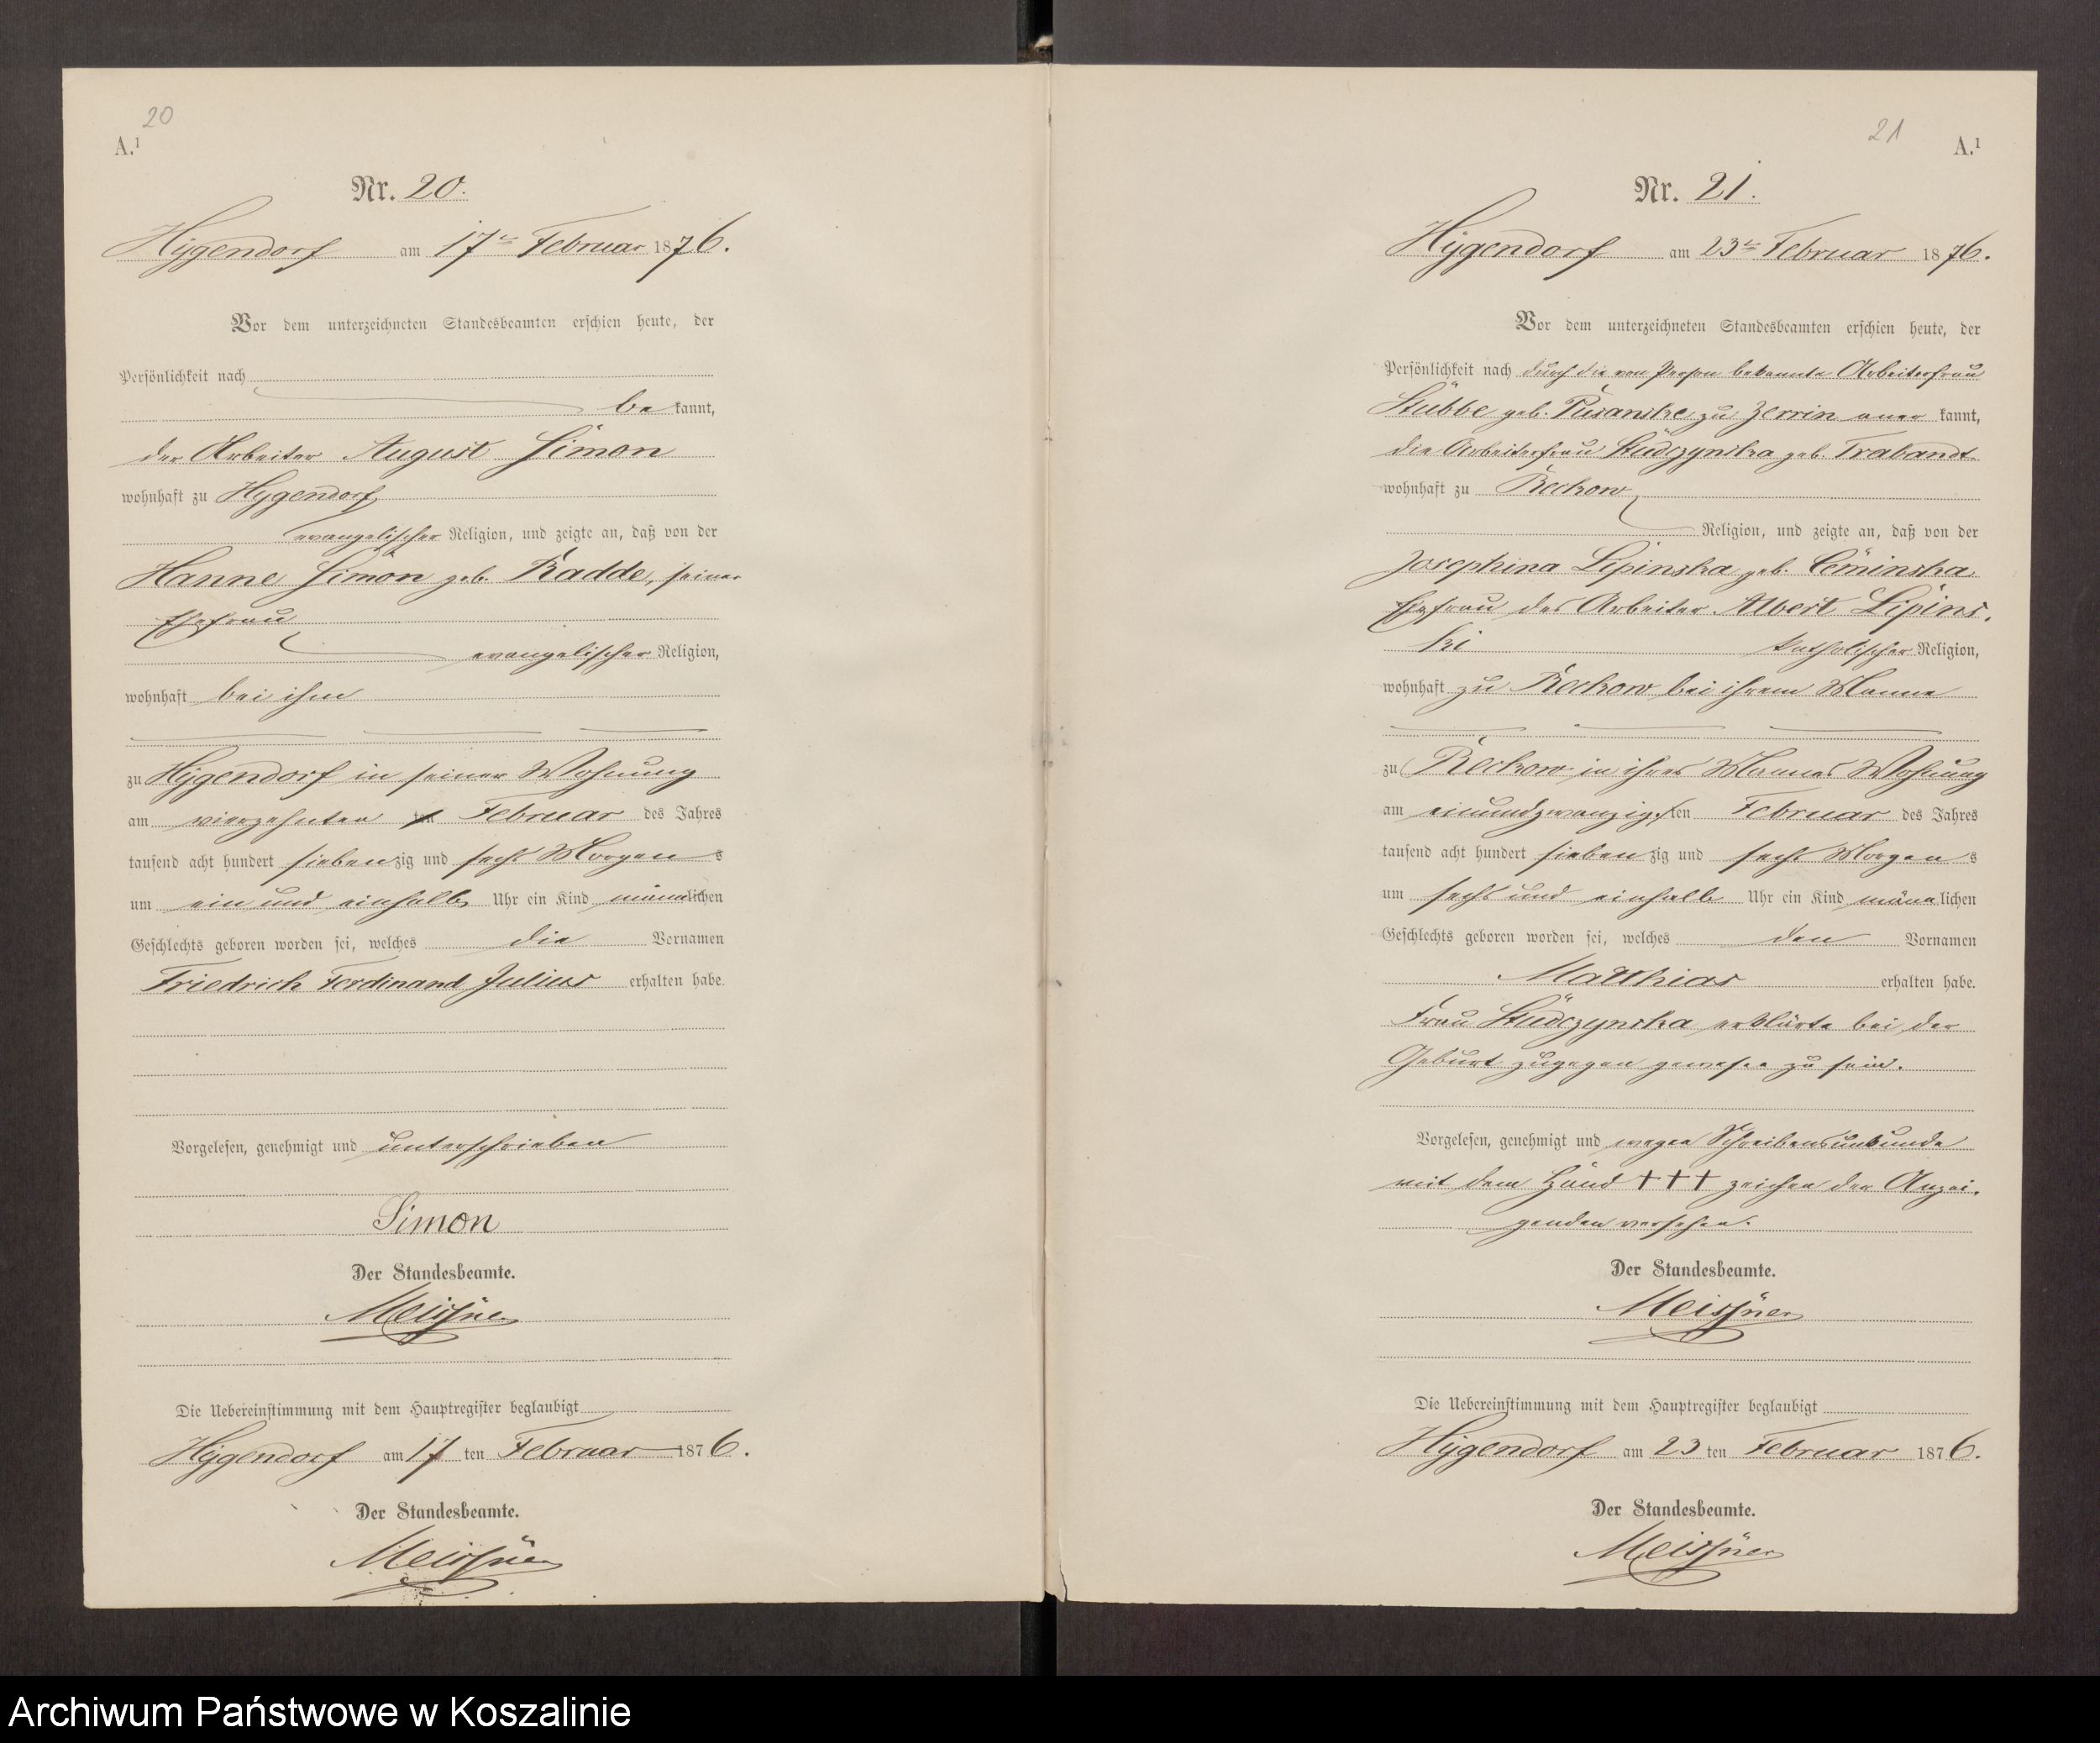 20
A.¹
Nr. 20.
Hygendorf am 17ten Februar 1876.
Vor dem unterzeichneten Standesbeamten erschien heute, der
Persönlichkeit nach
be kannt,
der Arbeiter August Simon
wohnhaft zu Hygendorf
evangelischer Religion, und zeigte an, daß von der
Hanne Simon geb. Radde, seiner
Ehefrau
evangelischer Religion,
wohnhaft bei ihm
zu Hygendorf in seiner Wohnung
am vierzehnten ten Februar des Jahres
tausend acht hundert siebenzig und sechs Morgens
um ein und einhalb Uhr ein Kind männlichen
Geschlechts geboren worden sei, welches die Vornamen
Friedrich Ferdinand Julius erhalten habe.
Vorgelesen, genehmigt und unterschrieben
Simon
Der Standesbeamte.
Meissner
Die Uebereinstimmung mit dem Hauptregister beglaubigt
Hygendorf am 17 ten Februar 1876.
Der Standesbeamte.
Meissner
21
A.¹
Nr. 21.
Hygendorf am 23ten Februar 1876.
Vor dem unterzeichneten Standesbeamten erschien heute, der
Persönlichkeit nach durch die von Person bekannte Arbeiterfrau
Stübbe geb. Pusanske zu Zerrin aner kannt,
die Arbeiterfrau Studzynska geb. Trabandt
wohnhaft zu Reckow
Religion, und zeigte an, daß von der
Josephina Lipinska geb. Cminska
Ehefrau des Arbeiter Albert Lipins-
ki katholischer Religion,
wohnhaft zu Reckow bei ihrem Manne
zu Reckow in ihres Mannes Wohnung
am einundzwanzigsten Februar des Jahres
tausend acht hundert siebenzig und sechs Morgens
um sechs und einhalb Uhr ein Kind männlichen
Geschlechts geboren worden sei, welches den Vornamen
Matthias erhalten habe.
Frau Studczynska erklärte bei der
Geburt zugegen gewesen zu sein.
Vorgelesen, genehmigt und wegen Schreibensunkunde
mit dem Hand +++ zeichen der Anzei-
genden versehen.
Der Standesbeamte.
Meissner
Die Uebereinstimmung mit dem Hauptregister beglaubigt
Hygendorf am 23 ten Februar 1876.
Der Standesbeamte.
Meissner
Archiwum Państwowe w Koszalinie